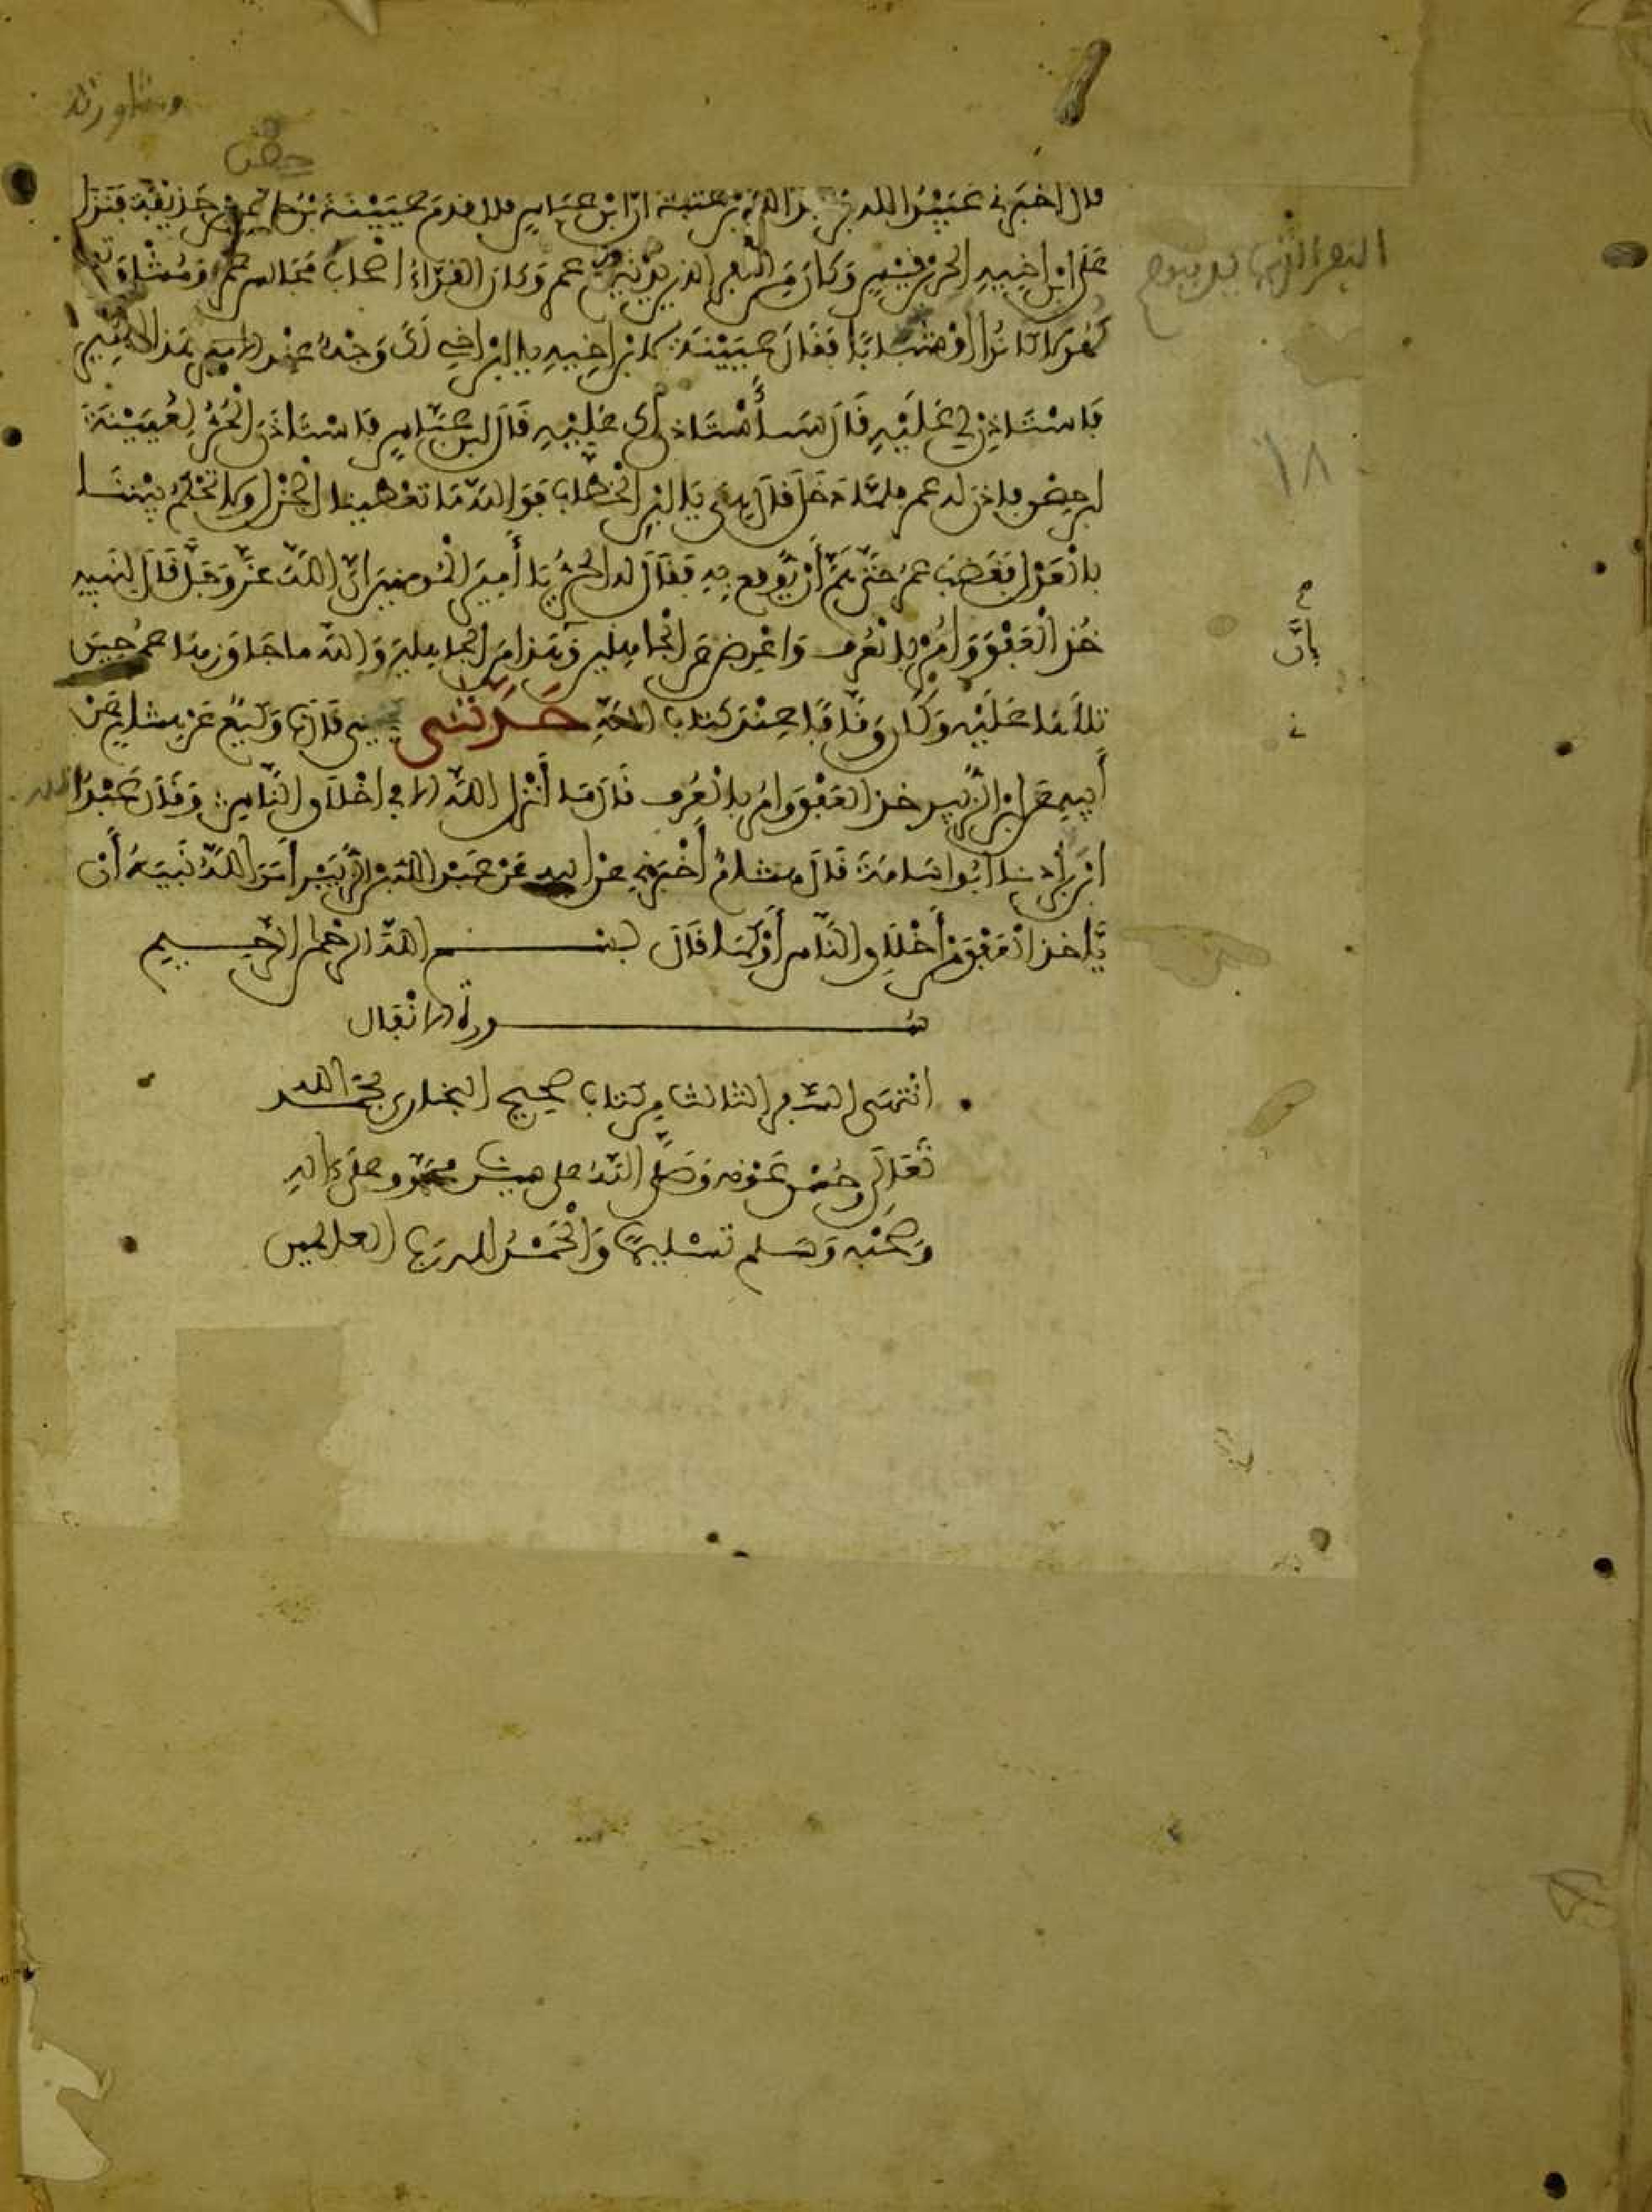 ومشاورته
حصن
قال اخبرني عبيد الله بن عبد الله بن عتبة ان ابن عباس قال قدم عيينة بن حصن بن حذيفة فنزل
على ابن اخيه الحر بن قيس وكان من النفر الذين يدنيهم عمر وكان القراء اصحاب مجالس عمر ومشاورته
كهولا كانوا او شبابا فقال عيينة لابن اخيه يا ابن اخي لك وجه عند هذا الامير
فاستاذن لي عليه قال سأستاذن لك عليه قال ابن عباس فاستاذن الحر لعيينة
بن حصن فاذن له عمر فلما دخل قال هي يا ابن الخطاب فوالله ما تعطينا الجزل ولا تحكم بيننا
بالعدل فغضب عمر حتى هم أن يوقع به فقال له الحر يا أمير المومنين ان الله عز وجل قال لنبيه
خذ العفو وامر بالعرف واعرض عن الجاهلين وهذا من الجاهلين والله ما جاوزها عمر حين
تلاها عليه وكان وقافا عند كتاب الله حدثني يحيى قال نا وكيع عن هشام عن
أبيه عن ابن الزبير خذ العفو وامر بالعرف قال ما أنزل الله الا في اخلاق الناس وقال عبد الله
ابن براد نا ابو اسامة قال هشام أخبرني عن ابيه عن عبد الله بن الزبير امر الله نبيه أن
ياخذ العفو من أخلاق الناس أو كما قال بسم الله الرحمن الرحيم
سورة الانفال
انتهى السفر الثالث من كتاب صحيح البخاري بحمد الله
تعالى وحسن عونه وصلى الله على سيدنا محمد وعلى ءاله
وصحبه وسلم تسليما والحمد لله رب العالمين
١٨
بأن